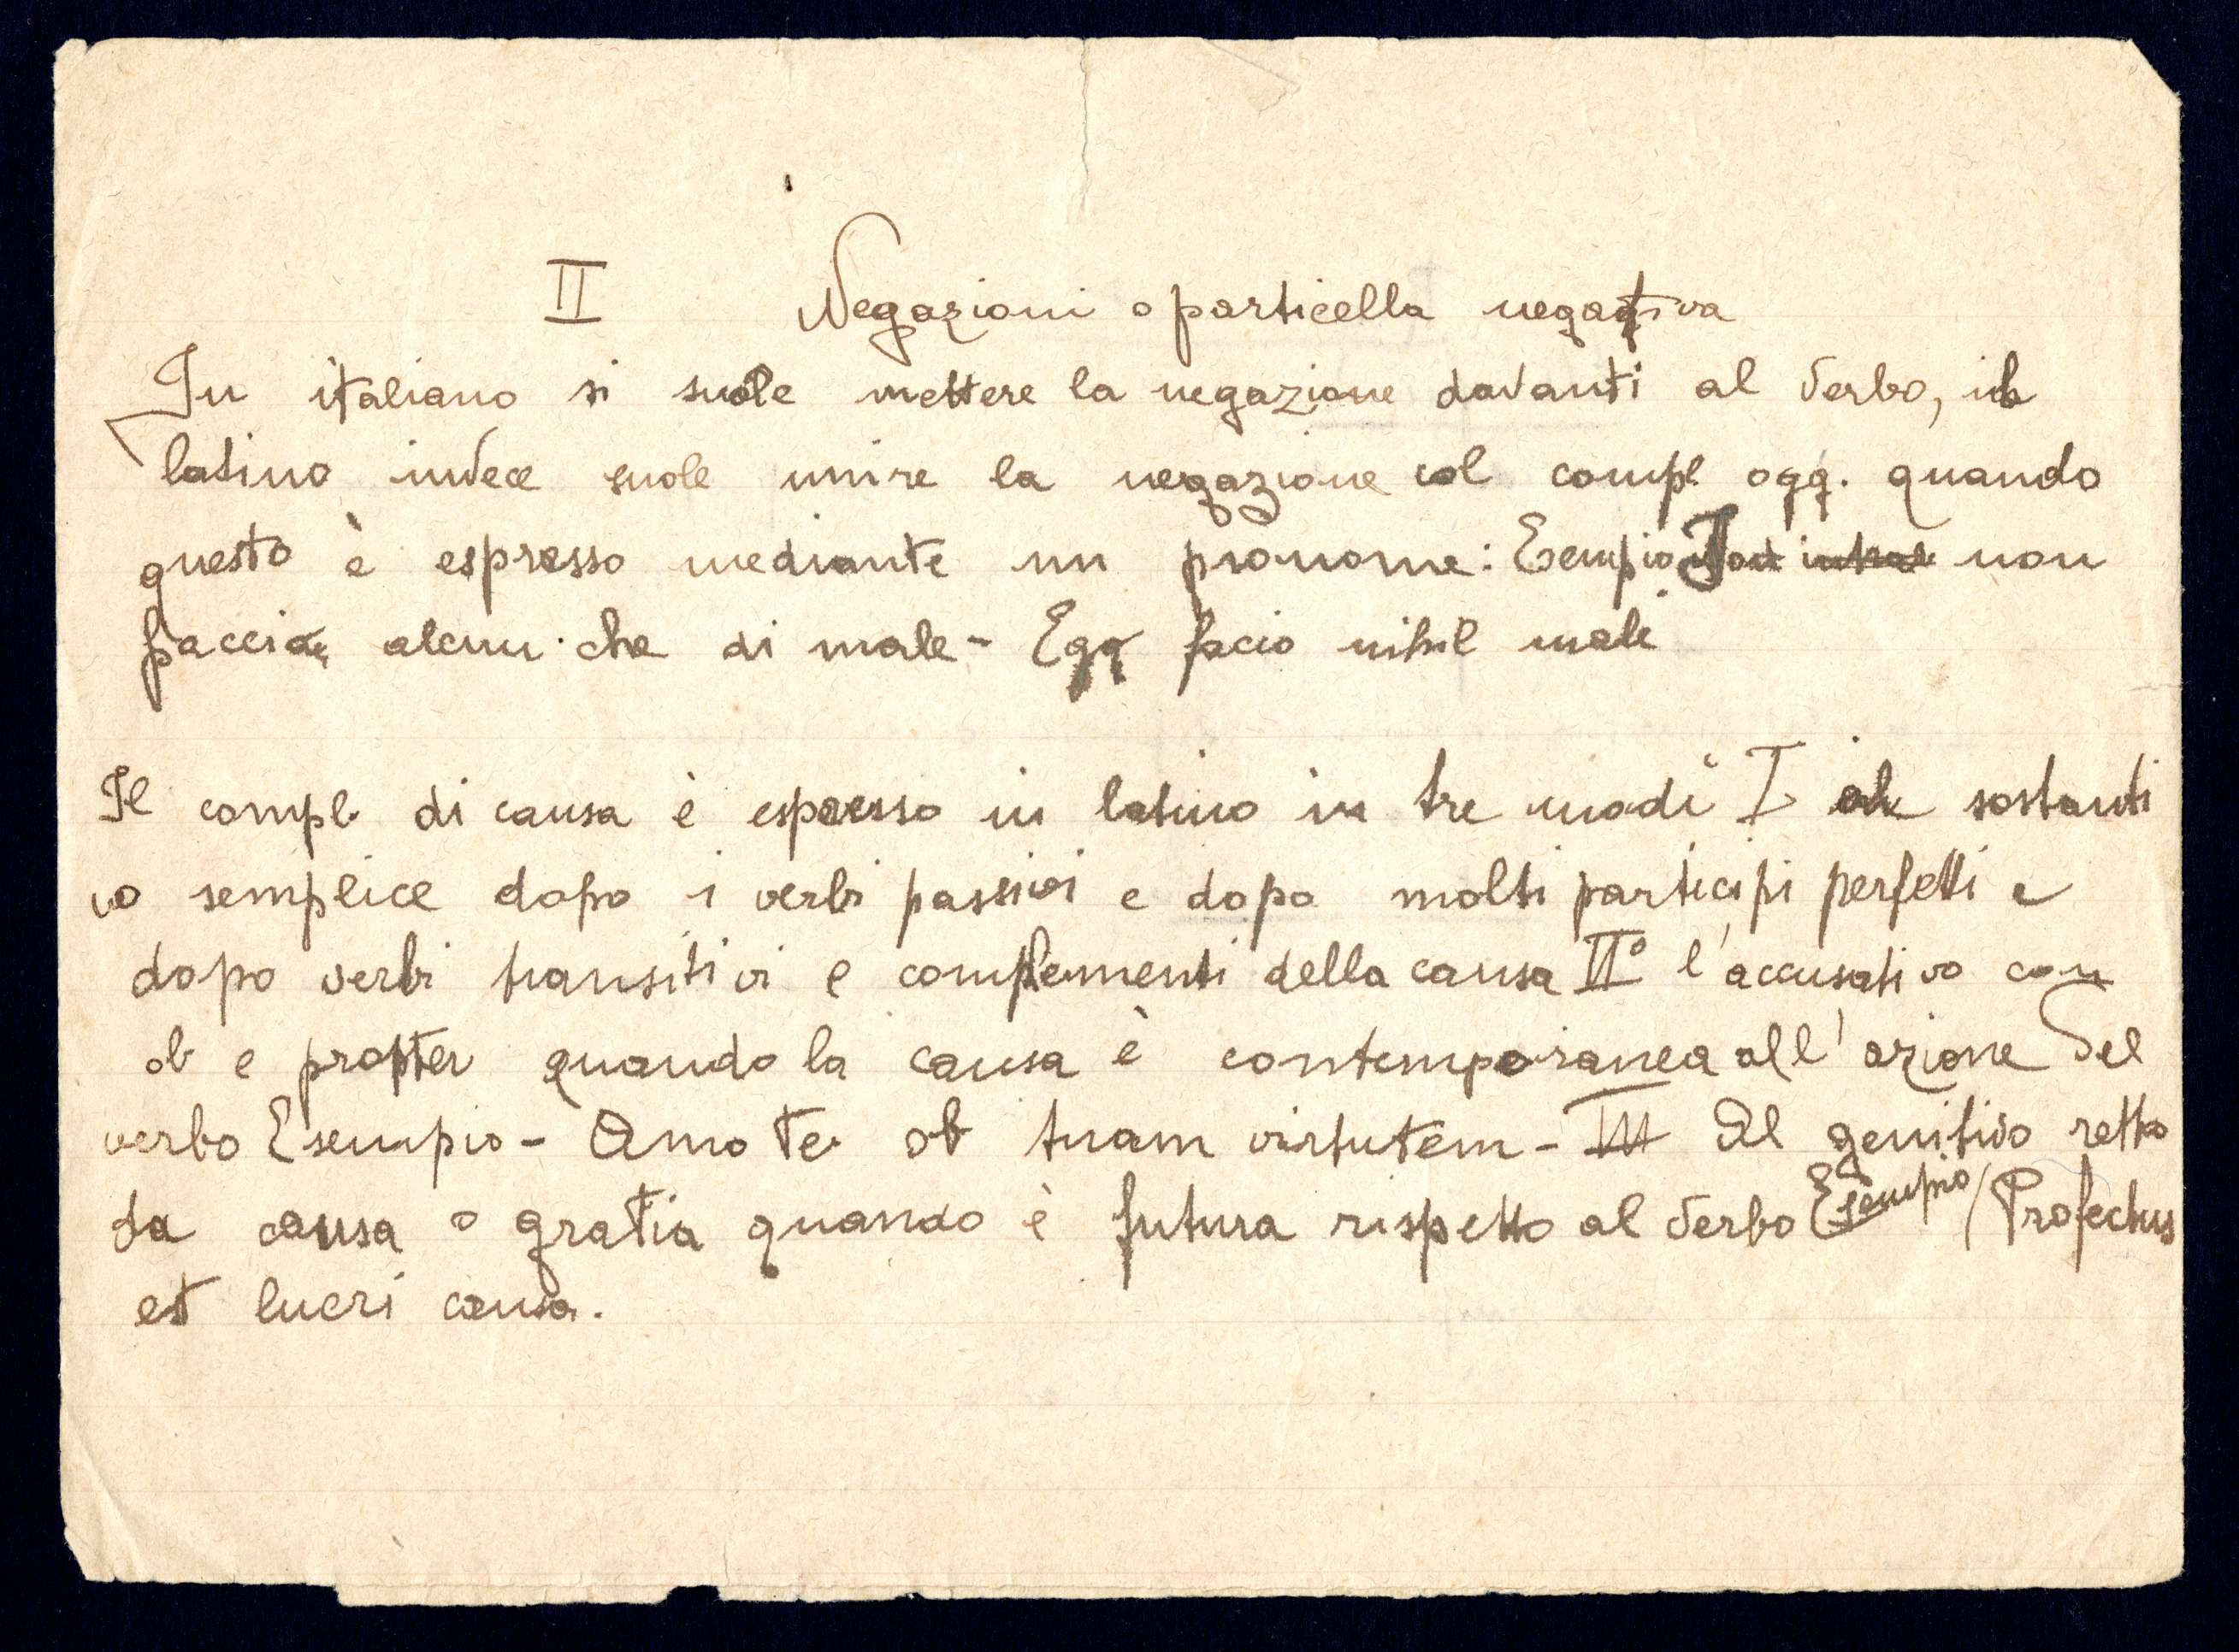 II Negazioni o particella negativa
In italiano si suole mettere la negazione davanti al verbo, il
latino invece suole unire la negazione col compl ogg. quando
questo è espresso mediante un pronome: Esempio I non
faccio alcun che di male - Ego facio nihil male
Il compl. di causa è espresso in latino in tre modi I sostanti
vo semplice dopo i verbi passivi e dopo molti participi perfetti e
dopo verbi transitivi e complementi della causa II° l'accusativo con
ob e propter quando la causa è contemporanea all'azione del
verbo Esempio - Amo te ob tuam virtutem - III Il genitivo retto
da causa o gratia quando è futura rispetto al verbo Esempio / Profectus
est lucri causa.